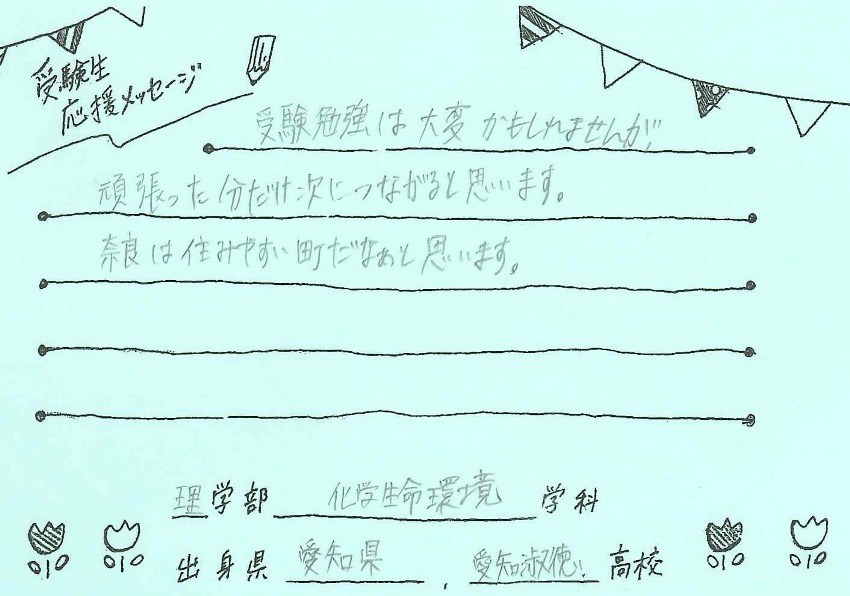 受験生
応援メッセージ
受験勉強は大変かもしれませんが、
頑張った分だけ次につながると思います。
奈良は住みやすい町だなぁと思います。
理学部 化学生命環境 学科
出身県 愛知県 , 愛知淑徳 高校